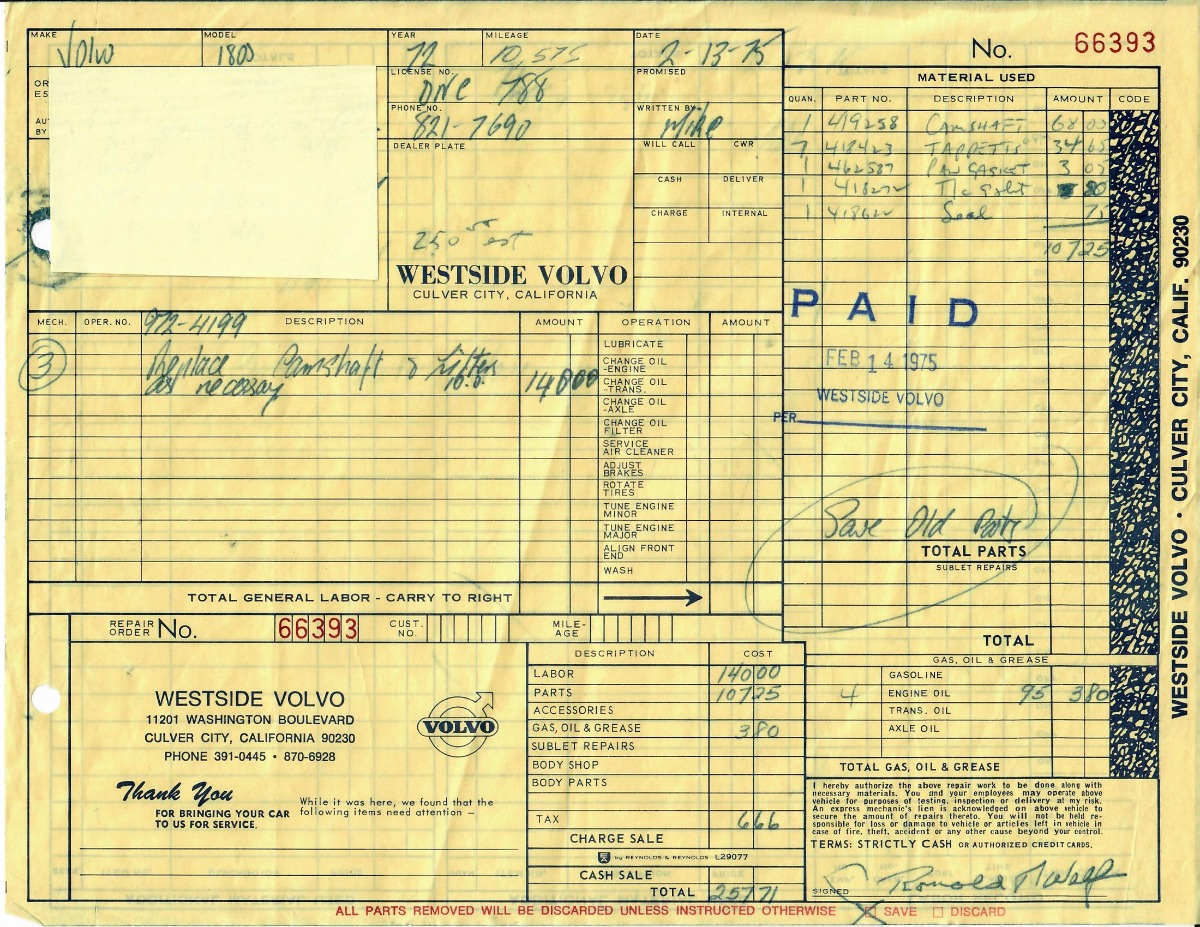 MAKE Volvo MODEL 1800 YEAR 72 MILEAGE 10,575 DATE 2-13-75
No. 66393
OR
ES
AU
BY
LICENSE NO. DNC 788 PROMISED
PHONE NO. 821-7690 WRITTEN BY Mike
DEALER PLATE WILL CALL CWR
CASH DELIVER
CHARGE INTERNAL
250 00 est
WESTSIDE VOLVO
CULVER CITY, CALIFORNIA
MATERIAL USED
QUAN. PART NO. DESCRIPTION AMOUNT CODE
1 419258 CAMSHAFT 68 00
7 418423 TAPPETTS 34 65
1 462587 PAN GASKET 3 05
1 418272 80
1 Seal 75
107 25
PAID
FEB 14 1975
WESTSIDE VOLVO
PER
Save Old Parts
TOTAL PARTS
SUBLET REPAIRS
TOTAL
MECH. OPER. NO. 972-4199 DESCRIPTION AMOUNT OPERATION AMOUNT
3 Replace Camshaft & Lifters
as necessary 140 00
LUBRICATE
CHANGE OIL -ENGINE
CHANGE OIL -TRANS.
CHANGE OIL -AXLE
CHANGE OIL FILTER
SERVICE AIR CLEANER
ADJUST BRAKES
ROTATE TIRES
TUNE ENGINE MINOR
TUNE ENGINE MAJOR
ALIGN FRONT END
WASH
TOTAL GENERAL LABOR - CARRY TO RIGHT
REPAIR ORDER No. 66393 CUST. NO. MILE-AGE
WESTSIDE VOLVO
11201 WASHINGTON BOULEVARD
CULVER CITY, CALIFORNIA 90230
PHONE 391-0445 • 870-6928
VOLVO
Thank You
FOR BRINGING YOUR CAR
TO US FOR SERVICE.
While it was here, we found that the
following items need attention –
DESCRIPTION COST
LABOR 140 00
PARTS 107 25
ACCESSORIES
GAS, OIL & GREASE 3 80
SUBLET REPAIRS
BODY SHOP
BODY PARTS
TAX 6 66
CHARGE SALE
by REYNOLDS & REYNOLDS L29077
CASH SALE
TOTAL 257 71
GAS, OIL & GREASE
GASOLINE
4 ENGINE OIL 95 3 80
TRANS. OIL
AXLE OIL
TOTAL GAS, OIL & GREASE
I hereby authorize the above repair work to be done along with
necessary materials. You and your employees may operate above
vehicle for purposes of testing, inspection or delivery at my risk.
An express mechanic's lien is acknowledged on above vehicle to
secure the amount of repairs thereto. You will not be held re-
sponsible for loss or damage to vehicle or articles left in vehicle in
case of fire, theft, accident or any other cause beyond your control.
TERMS: STRICTLY CASH OR AUTHORIZED CREDIT CARDS.
SIGNED Ronald
ALL PARTS REMOVED WILL BE DISCARDED UNLESS INSTRUCTED OTHERWISE SAVE DISCARD
WESTSIDE VOLVO • CULVER CITY, CALIF. 90230